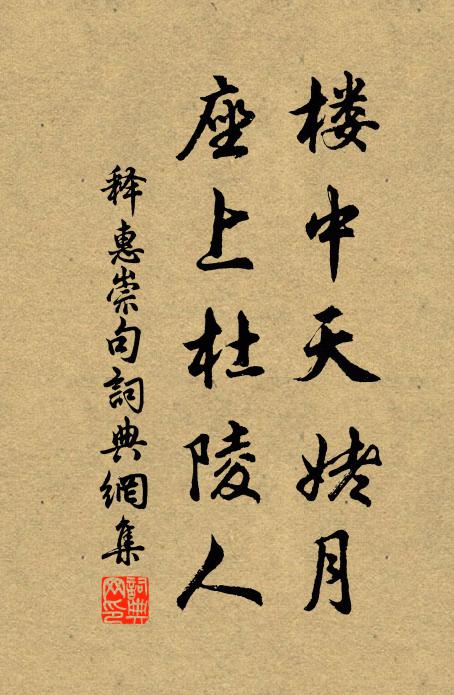 楼中天姥月
座上杜陵人
释惠崇句詞典網集
詞典网印